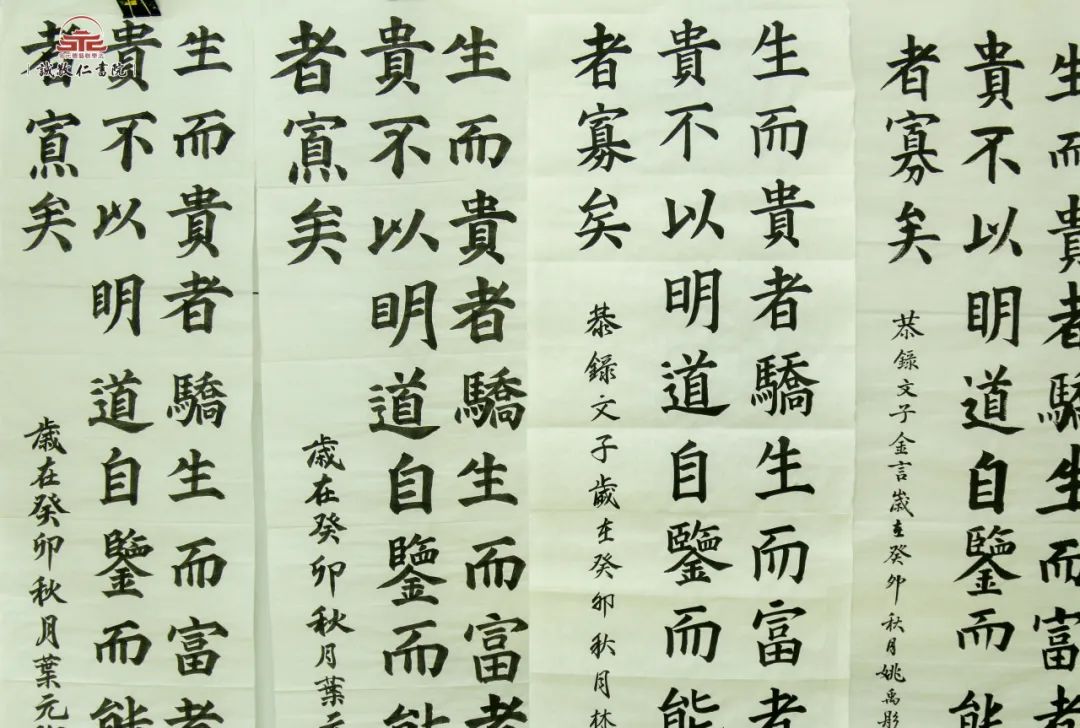 生而貴者驕生而富
貴不以明道自鑒而能
者寡矣 恭錄文子金言歲在癸卯秋月姚禹彤
生而貴者驕生而富者
貴不以明道自鑒而能
者寡矣 恭錄文子歲在癸卯秋月林
生而貴者驕生而富者
貴不以明道自鑒而能
者寡矣 歲在癸卯秋月葉元
生而貴者驕生而富者
貴不以明道自鑒而能
者寡矣 歲在癸卯秋月葉元
誠敬仁書院